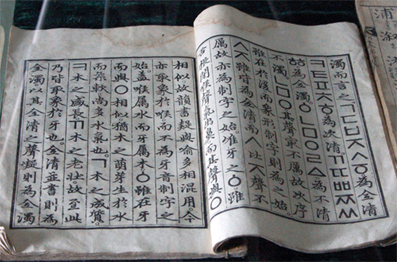 濁而言之ㄱㄷㅂㅈㅅㆆ為全清
ㅋㅌㅍㅊㅎ為次清ㄲㄸㅃㅉㅆ
ㆅ為全濁ㆁㄴㅁㅇㄹㅿ為不清
不濁ㄴㅁㅇ其聲㝡不厲故次序
雖在於後而象形制字則為之始
ㅅㅈ雖皆為全清而ㅅ比ㅈ聲不
厲故亦為制字之始唯牙之ㆁ雖
舌根閉喉聲氣出鼻而其聲與ㅇ
相似故韻書疑與喩多相混用今
亦取象於喉而不為牙音制字之
始盖喉屬水而牙屬木ㆁ雖在牙
而與ㅇ相似猶木之萌芽生於水
而柔軟尚多水氣也ㄱ木之成質
ㅋ木之盛長ㄲ木之老壯故至此
乃皆取象於牙也全清並書則為
全濁以其全清之聲凝則為全濁